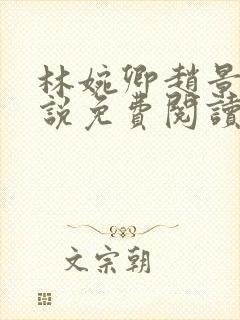 林婉卿趙景
說免費閱讀
文宗朝